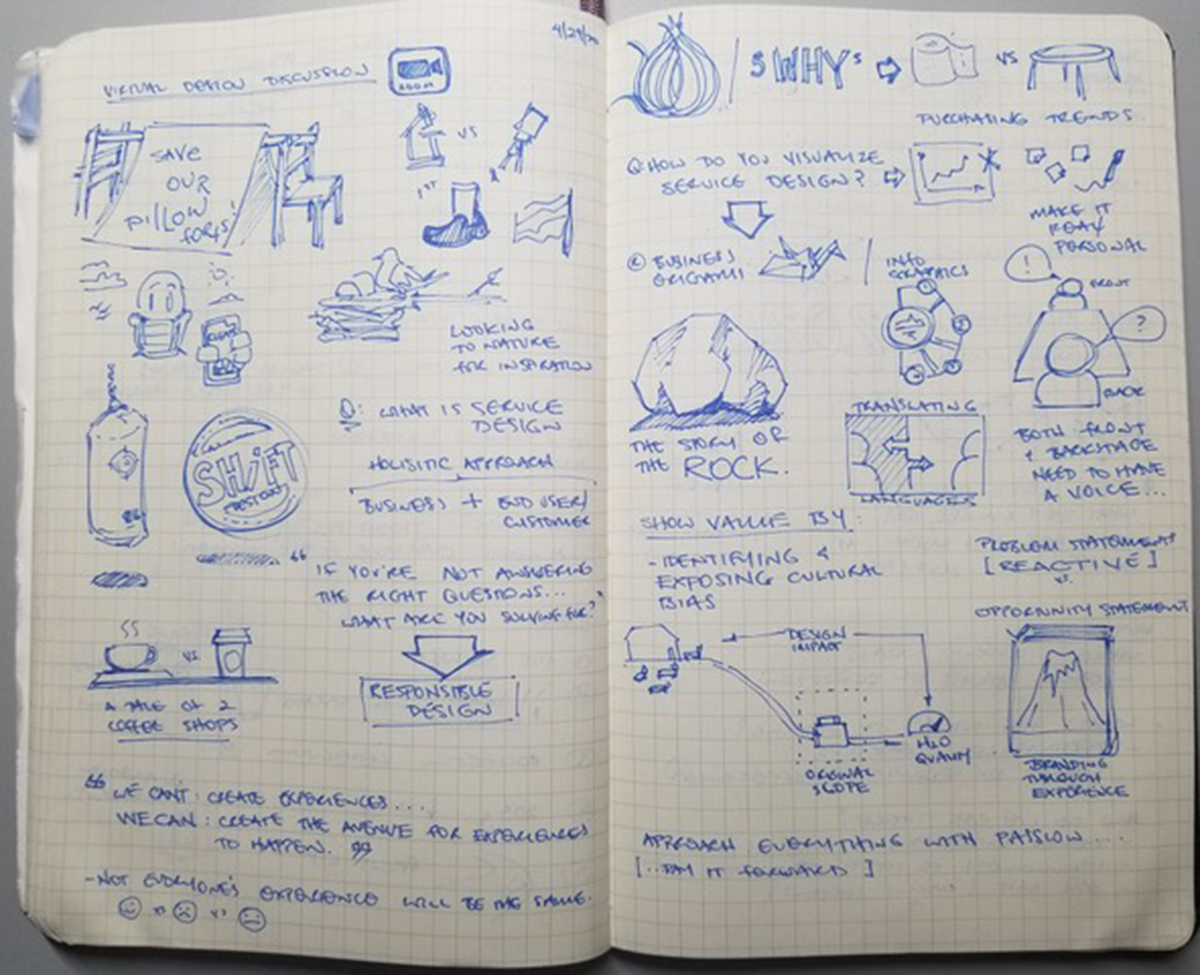 VIRTUAL DESIGN DISCUSSION
ZOOM
SAVE
OUR
PILLOW
FORTS!
VS
1ST
LOOKING
TO NATURE
FOR INSPIRATION
SHiFT
DESIGN
Q: WHAT IS SERVICE
DESIGN
HOLISTIC APPROACH
BUSINESS + END USER/
CUSTOMER
"IF YOU'RE NOT ANSWERING
THE RIGHT QUESTIONS...
WHAT ARE YOU SOLVING FOR?"
RESPONSIBLE
DESIGN
VS
A TALE OF 2
COFFEE SHOPS
"WE CAN'T: CREATE EXPERIENCES...
WE CAN: CREATE THE AVENUE FOR EXPERIENCES
TO HAPPEN."
-NOT EVERYONE'S EXPERIENCE WILL BE THE SAME.
VS VS
/ 5 WHYS
VS
PURCHASING TRENDS
Q: HOW DO YOU VISUALIZE
SERVICE DESIGN?
MAKE IT
REAL/
PERSONAL
BUSINESS
ORIGAMI
INFO
GRAPHICS
!
FRONT
?
BACK
THE STORY OF
THE ROCK.
TRANSLATING
LANGUAGES
BOTH FRONT
& BACKSTAGE
NEED TO HAVE
A VOICE...
SHOW VALUE BY:
-IDENTIFYING &
EXPOSING CULTURAL
BIAS
PROBLEM STATEMENTS
[REACTIVE]
VS.
OPPORTUNITY STATEMENT
DESIGN
IMPACT
ORIGINAL
SCOPE
H2O
QUALITY
BRANDING
THROUGH
EXPERIENCE
APPROACH EVERYTHING WITH PASSION...
[...PAY IT FORWARD]